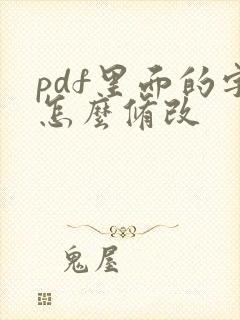 pdf里面的字
怎麽脩改
鬼屋